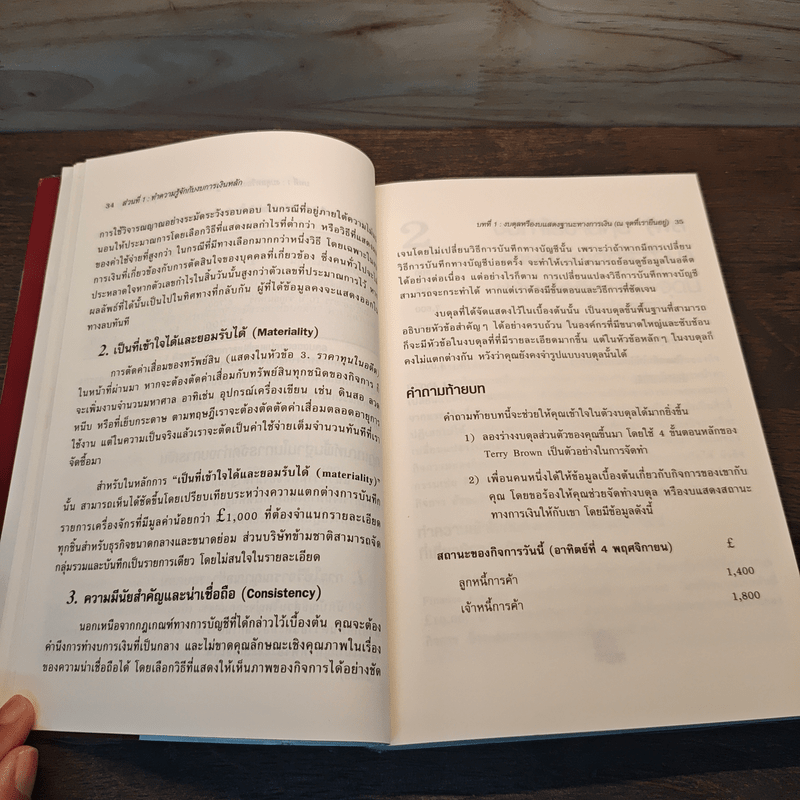 34 ส่วนที่ 1 : ทำความรู้จักกับงบการเงินหลัก
การใช้วิจารณญาณอย่างระมัดระวังรอบคอบ ในกรณีที่อยู่ภายใต้ความไม่แน่
นอนให้ประมาณการโดยเลือกวิธีที่แสดงผลกำไรที่ต่ำกว่า หรือวิธีที่แสดง
ของค่าใช้จ่ายที่สูงกว่า ในกรณีที่มีทางเลือกมากกว่าหนึ่งวิธี โดยเฉพาะใน
การเงินที่เกี่ยวข้องกับการตัดสินใจของบุคคลที่เกี่ยวข้อง ซึ่งคนทั่วไปจะไม่
ประหลาดใจหากตัวเลขกำไรในสิ้นวันนั้นสูงกว่าตัวเลขที่ประมาณการไว้ หาก
ผลลัพธ์ที่ได้นั้นเป็นไปในทิศทางที่กลับกัน ผู้ที่ได้ข้อมูลคงจะแสดงออก
ทางลบทันที
2. เป็นที่เข้าใจได้และยอมรับได้ (Materiality)
การตัดค่าเสื่อมของทรัพย์สิน (แสดงในหัวข้อ 3. ราคาทุนในอดีต)
ในหน้าที่ผ่านมา หากจะต้องตัดค่าเสื่อมกับทรัพย์สินทุกชนิดของกิจการ
จะเพิ่มงานจำนวนมหาศาล อาทิเช่น อุปกรณ์เครื่องเขียน เช่น ดินสอ ลวด
หนีบ หรือที่เย็บกระดาษ ตามทฤษฎีเราจะต้องตัดค่าเสื่อมตลอดอายุการ
ใช้งาน แต่ในความเป็นจริงแล้วเราจะตัดเป็นค่าใช้จ่ายเต็มจำนวนทันทีที่เรา
จัดซื้อมา
สำหรับในหลักการ "เป็นที่เข้าใจได้และยอมรับได้ (materiality)"
นั้น สามารถเห็นได้ชัดขึ้นโดยเปรียบเทียบระหว่างความแตกต่างการบันทึก
รายการเครื่องจักรที่มีมูลค่าน้อยกว่า £1,000 ที่ต้องจำแนกรายละเอียด
ทุกชิ้นสำหรับธุรกิจขนาดกลางและขนาดย่อม ส่วนบริษัทข้ามชาติสามารถจัด
กลุ่มรวมและบันทึกเป็นรายการเดียว โดยไม่สนใจในรายละเอียด
3. ความมีนัยสำคัญและน่าเชื่อถือ (Consistency)
นอกเหนือจากกฎเกณฑ์ทางการบัญชีที่ได้กล่าวไว้เบื้องต้น คุณจะต้อง
คำนึงการทำงบการเงินที่เป็นกลาง และไม่ขาดคุณลักษณะเชิงคุณภาพในเรื่อง
ของความน่าเชื่อถือได้ โดยเลือกวิธีที่แสดงให้เห็นภาพของกิจการได้อย่างชัด
บทที่ 1 : งบดุลหรืองบแสดงฐานะทางการเงิน (ณ จุดที่เรายืนอยู่) 35
เจนโดยไม่เปลี่ยนวิธีการบันทึกทางบัญชีนั้น เพราะว่าถ้าหากมีการเปลี่ยน
วิธีการบันทึกทางบัญชีบ่อยครั้ง จะทำให้เราไม่สามารถย้อนดูข้อมูลในอดีต
ได้อย่างต่อเนื่อง แต่อย่างไรก็ตาม การเปลี่ยนแปลงวิธีการบันทึกทางบัญชี
สามารถจะกระทำได้ หากแต่เราต้องมีขั้นตอนและวิธีการที่ชัดเจน
งบดุลที่ได้จัดแสดงไว้ในเบื้องต้นนั้น เป็นงบดุลขั้นพื้นฐานที่สามารถ
อธิบายหัวข้อสำคัญๆ ได้อย่างครบถ้วน ในองค์กรที่มีขนาดใหญ่และซับซ้อน
ก็จะมีหัวข้อในงบดุลที่ที่มีรายละเอียดมากขึ้น แต่ในหัวข้อหลักๆ ในงบดุลก็
คงไม่แตกต่างกัน หวังว่าคุณยังคงจำรูปแบบงบดุลนั้นได้
คำถามท้ายบท
คำถามท้ายบทนี้จะช่วยให้คุณเข้าใจในตัวงบดุลได้มากยิ่งขึ้น
1) ลองร่างงบดุลส่วนตัวของคุณขึ้นมา โดยใช้ 4 ขั้นตอนหลักของ
Terry Brown เป็นตัวอย่างในการจัดทำ
2) เพื่อนคนหนึ่งได้ให้ข้อมูลเบื้องต้นเกี่ยวกับกิจการของเขากับ
คุณ โดยขอร้องให้คุณช่วยจัดทำงบดุล หรืองบแสดงสถานะ
ทางการเงินให้กับเขา โดยมีข้อมูลดังนี้
สถานะของกิจการวันนี้ (อาทิตย์ที่ 4 พฤศจิกายน) £
ลูกหนี้การค้า 1,400
เจ้าหนี้การค้า 1,800